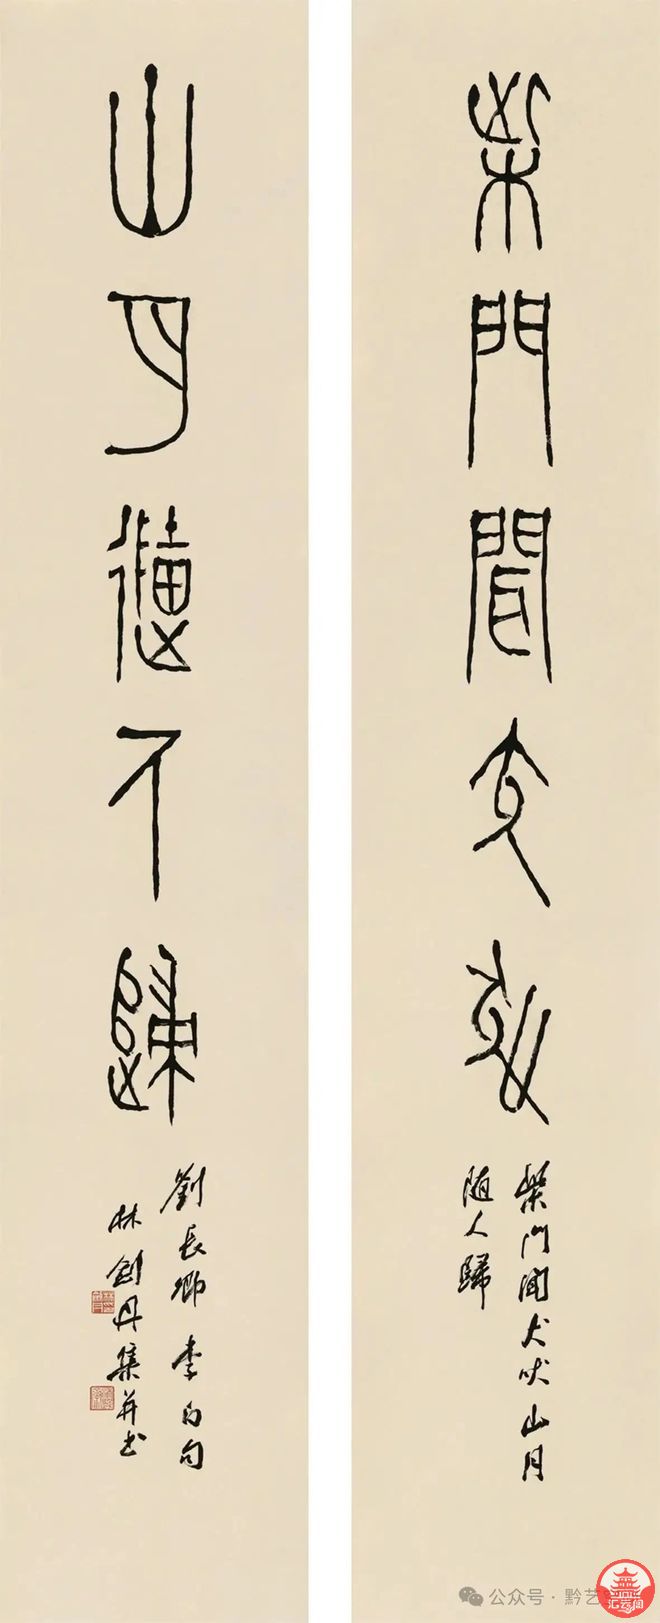 柴門聞犬吠
柴門聞犬吠山月
随人歸
山月隨人歸
劉長卿李白句
林劍丹集并书
公众号 · 黔艺